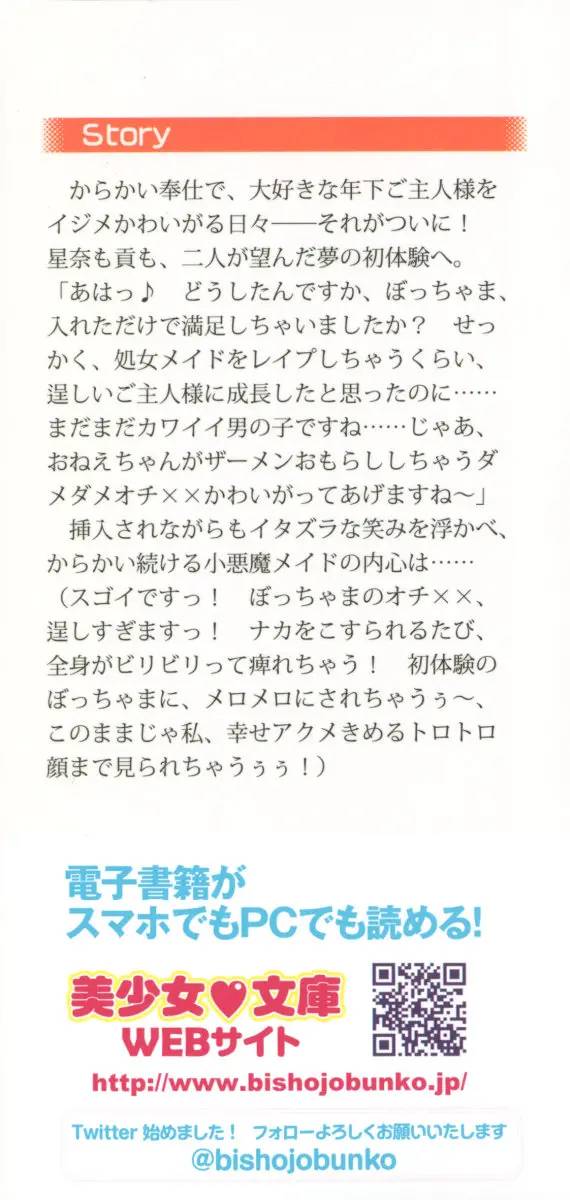 Story
からかい奉仕で、大好きな年下ご主人様を
イジメかわいがる日々――それがついに！
星奈も貢も、二人が望んだ夢の初体験へ。
「あはっ♪　どうしたんですか、ぼっちゃま、
入れただけで満足しちゃいましたか？　せっ
かく、処女メイドをレイプしちゃうくらい、
逞しいご主人様に成長したと思ったのに……
まだまだカワイイ男の子ですね……じゃあ、
おねえちゃんがザーメンおもらししちゃうダ
メダメオチ××かわいがってあげますね～」
挿入されながらもイタズラな笑みを浮かべ、
からかい続ける小悪魔メイドの内心は……
（スゴイですっ！　ぼっちゃまのオチ××、
逞しすぎますっ！　ナカをこすられるたび、
全身がビリビリって痺れちゃう！　初体験の
ぼっちゃまに、メロメロにされちゃうぅ～、
このままじゃ私、幸せアクメきめるトロトロ
顔まで見られちゃうぅぅ！）
電子書籍が
スマホでもPCでも読める!
美少女♥文庫
WEBサイト
http://www.bishojobunko.jp/
Twitter 始めました！　フォローよろしくお願いいたします
@bishojobunko